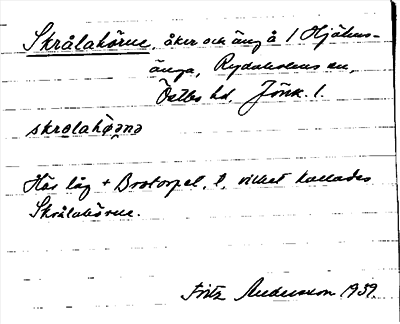 Skrålahörne, åker och äng å 1 Hjälms-
änga, Rydaholms sn,
Östbo hd, Jönk. l.
skrålahø̜ənə
Här låg + Brotorpet, t, vilket kallades
Skrålahörne.
Fritz Andersson 1939.